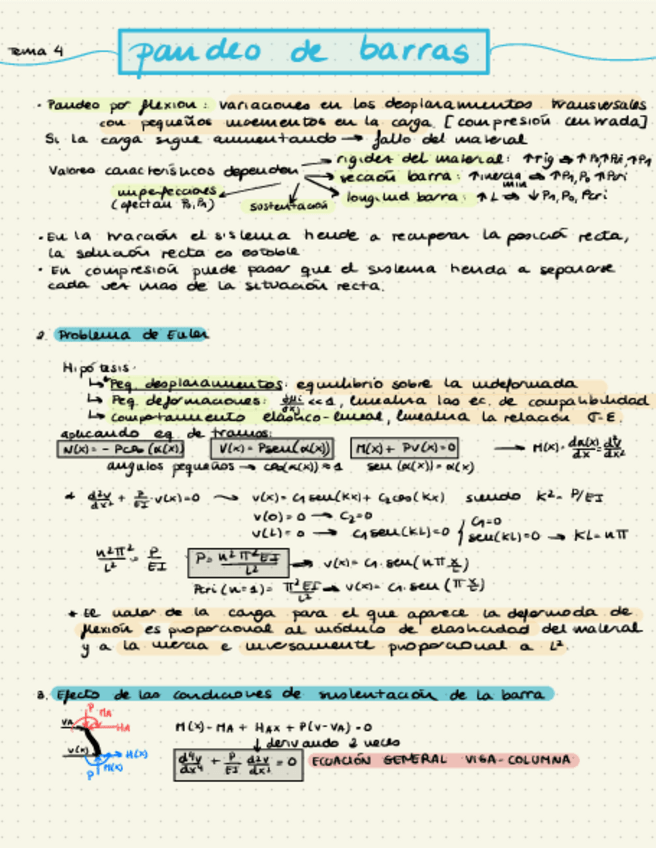 Tema 4
pandeo de barras
· Pandeo por flexión: variaciones en los desplazamientos transversales
con pequeños incrementos en la carga. [compresión centrada]
Si la carga sigue aumentando → fallo del material
Valores característicos dependen
→ rigidez del material: ↑rig
→ sección barra: ↑inercia min ⇒ ↑P1, P0 ↑Pcri
→ longitud barra: ↑L ⇒ ↓P1, P0, Pcri
imperfecciones
(afectan P0, P1)
sustentación
· En la tracción el sistema tiende a recuperar la posició recta,
la solución recta es estable
· En compresión puede pasar que el sistema tienda a separarse
cada vez mas de la situación recta.
2. Problema de Euler
Hipótesis:
↳ Peq. desplazamientos: equilibrio sobre la indeformada
↳ Peq. deformaciones: <<1, linealiza las ec. de compatibilidad
↳ comportamiento elástico-lineal, linealiza la relación σ-ε.
aplicando eq. de tramos:
N(x) = -Pcos(α(x)) V(x) = Psen(α(x)) M(x) + Pv(x) = 0 → M(x) =
ángulos pequeños → cos(α(x)) ≈ 1 sen(α(x)) ≈ α(x)
* d²v/dx² + P/EI · v(x) = 0 ⟶ v(x) = C1 sen(Kx) + C2 cos(Kx) siendo K² = P/EI
v(0) = 0 → C2 = 0
v(L) = 0 → C1 sen(KL) = 0 { C1 = 0
sen(KL) = 0 → KL = nπ
n²π²/L² = P/EI P = n²π²EI/L² → v(x) = C1 · sen(nπ x/L)
Pcri(n=1) = π²EI/L² → v(x) = C1 · sen(π x/L)
* El valor de la carga para el que aparece la deformada de
flexión es proporcional al módulo de elasticidad del material
y a la inercia e inversamente proporcional a L².
3. Efecto de las condiciones de sustentación de la barra
P
MA
VA
HA
V(x)
H(x)
P
M(x)
M(x) - MA + HAx + P(v - vA) = 0
↓ derivando 2 veces
d⁴v/dx⁴ + P/EI d²v/dx² = 0 ECUACIÓN GENERAL VIGA-COLUMNA